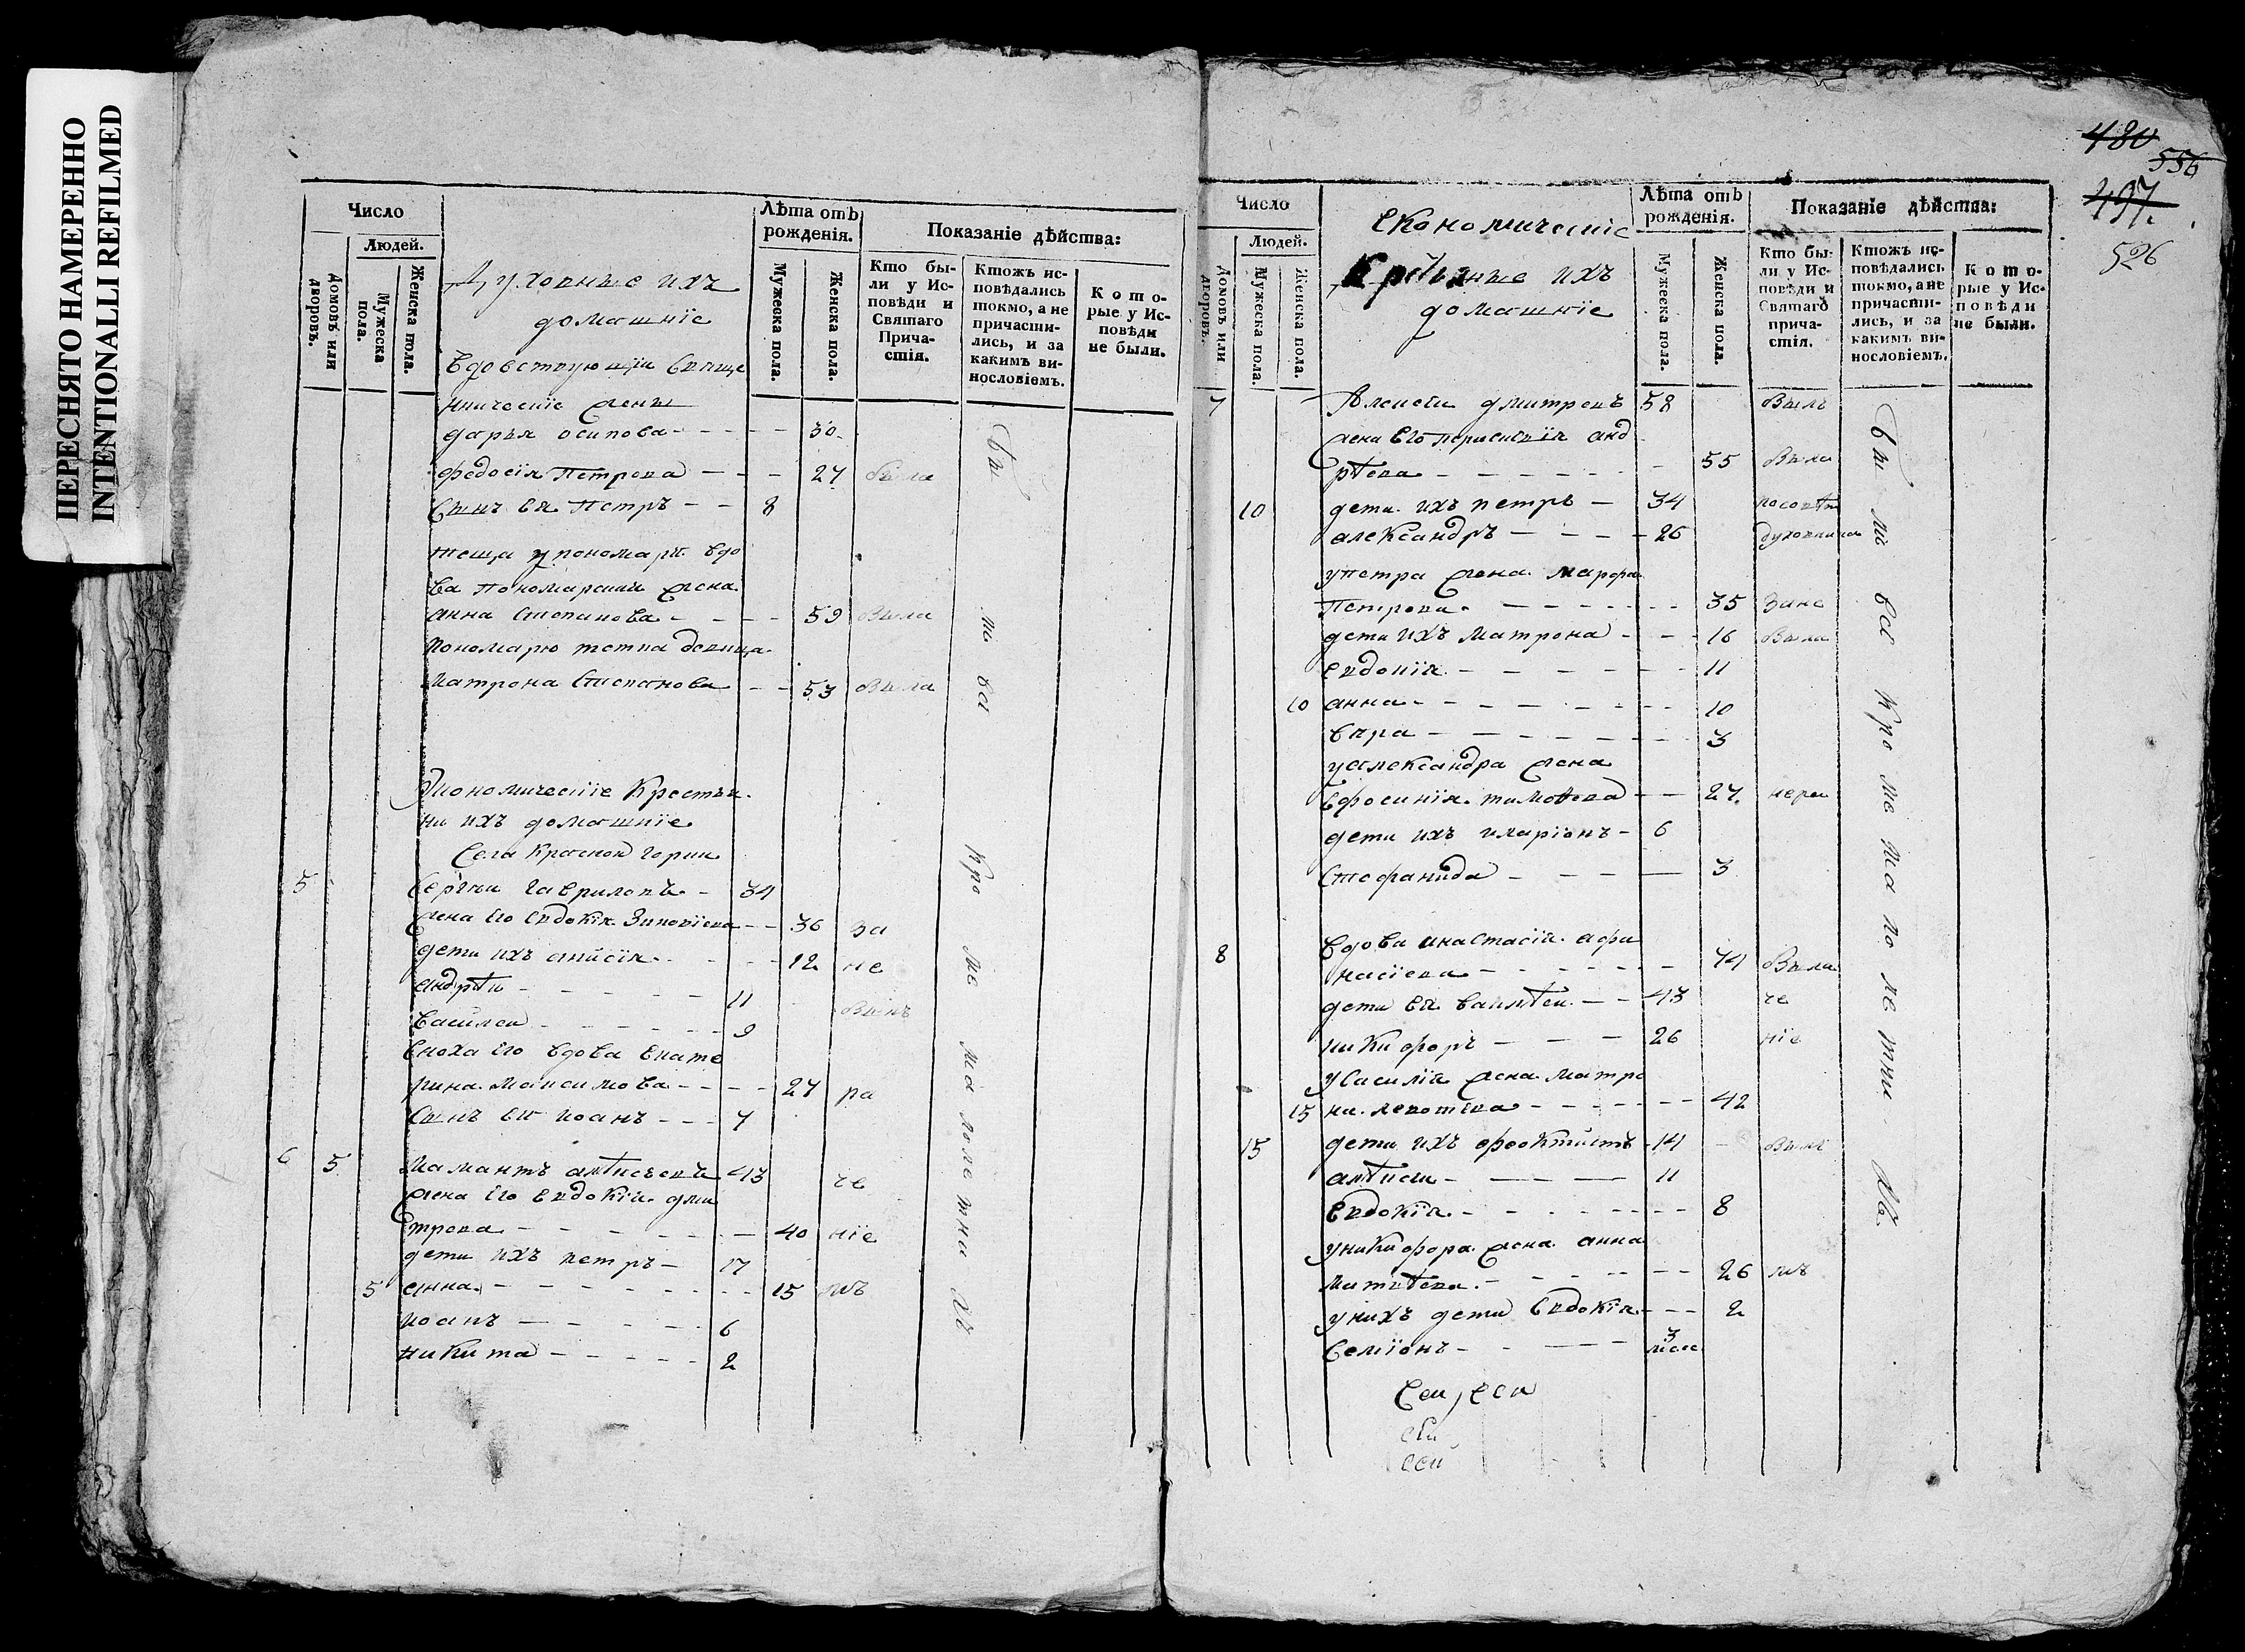 ПЕРЕСНЯТО НАМЕРЕННО
INTENTIONALLI REFILMED
Число
Людей.
Домовъ или дворовъ.
Мужеска пола.
Женска пола.
Духовные ихъ
домашніе
Лѣта отъ рожденія.
Мужеска пола.
Женска пола.
Показаніе дѣйства:
Кто были у Исповѣди и Святаго Причастія.
Ктожъ исповѣдались токмо, а не причастились, и за какимъ винословіемъ.
Которые у Исповѣди не были.
вдовствующіи свяще
нническіе жены
дарья осипова - - - - 30
федосія Петрова - - - 27 была
сынъ ея Петръ - - 8
теща у пономаря вдо
ва пономарская жена
анна степанова - - - 59 была
пономарю тетка девица
Матрона степанова - - 53 была
Экономическіе Крестья
ни ихъ домашніе
Села Красной горки
5 Сергѣи гавриловъ - 34
жена его евдокія Зиновіева - - 36 за
дети ихъ анисія - - - - 12 не
андрѣи - - - - - 11 былъ
василеи - - - - - 9
сноха его вдова екате
рина максимова - - - - 27 ра
сынъ ея иоанъ - - - 7
6 5 Мамантъ алѣксѣевъ 43 че
жена его евдокія дми
трева - - - - - - 40 ніе
дети ихъ петръ - 17
5 анна - - - - - - - 15 мъ
иоанъ - - - - - 6
никита - - - - - 2
бы ли всѣ кро ме ма лоле тни хъ
480
556
497.
526
Число
Людей.
Домовъ или дворовъ.
Мужеска пола.
Женска пола.
економическіе
Крестьяные ихъ
домашніе
Лѣта отъ рожденія.
Мужеска пола.
Женска пола.
Показаніе дѣйства:
Кто были у Исповѣди и Святаго причастія.
Ктожъ исповѣдались токмо, а не причастились, и за какимъ винословіемъ.
Которые у Исповѣди не были.
7 Алексѣи дмитревъ 58 былъ
жена его анд
рѣева - - - - - - - 55 была
10 дети ихъ петръ - 34 посовѣту
александръ - - - - 26 духовника
у петра жена марфа
Петрова - - - - - - - 35 зане
дети ихъ матрона - - - 16 была
евдокія - - - - - - - 11
10 анна - - - - - - - - 10
вера - - - - - - - 3
у александра жена
Ефросинія тимоѳева - - 27 нера
дети ихъ иларіонъ - 6
стефанида - - - - 3
8 вдова анастасія афа
насіева - - - - - - - 74 была
дети ея василѣи - - 43 че
никифоръ - - - 26 ніе
у василія жена матро
15 на - - - - - - 42
15 дети ихъ феоктистъ - 14 былъ
алѣксѣи - - - - 11
Евдокія - - - - - - - 8
у никифора жена анна
матвѣева - - - - - - 26 мъ
у нихъ дети Евдокія - - - 2
Семіонъ - - - - - 3 меся
бы ли всѣ кро ме ма ло ле тни хъ